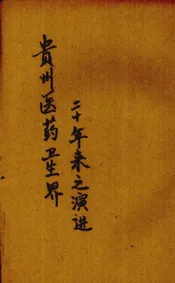 貴州医药卫生界
二十年来之演进